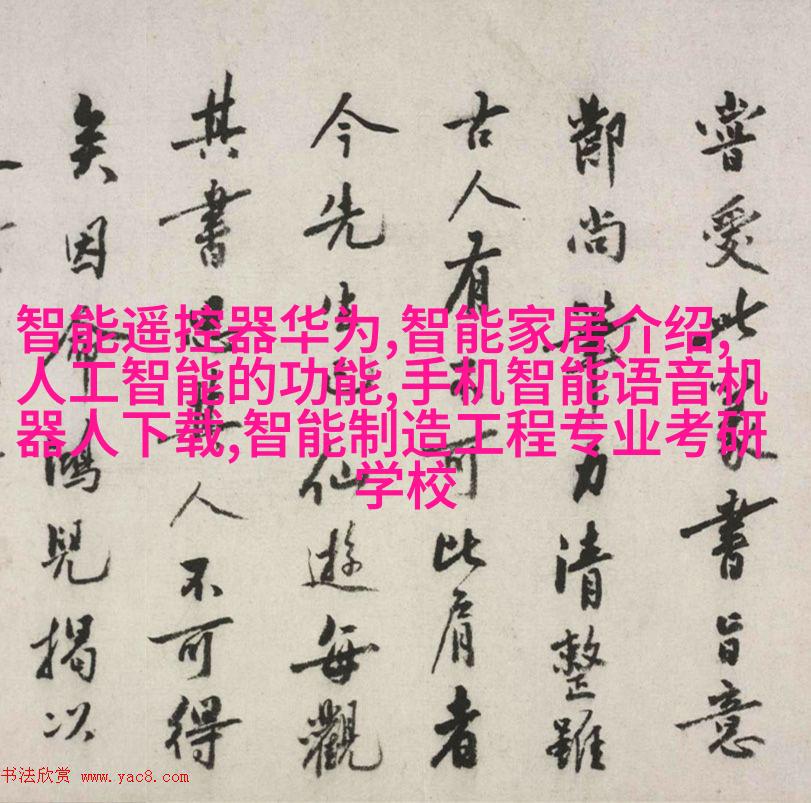 嘗愛此書旨意
尚筆力清整雖
古人有可比肩者
今先生仙遊每觀
其書思其人不可得
矣因命鴻兒揭以
智能遥控器华为,智能家居介绍,
人工智能的功能,手机智能语音机
器人下载,智能制造工程专业考研
学校
书法欣赏 www.yac8.com